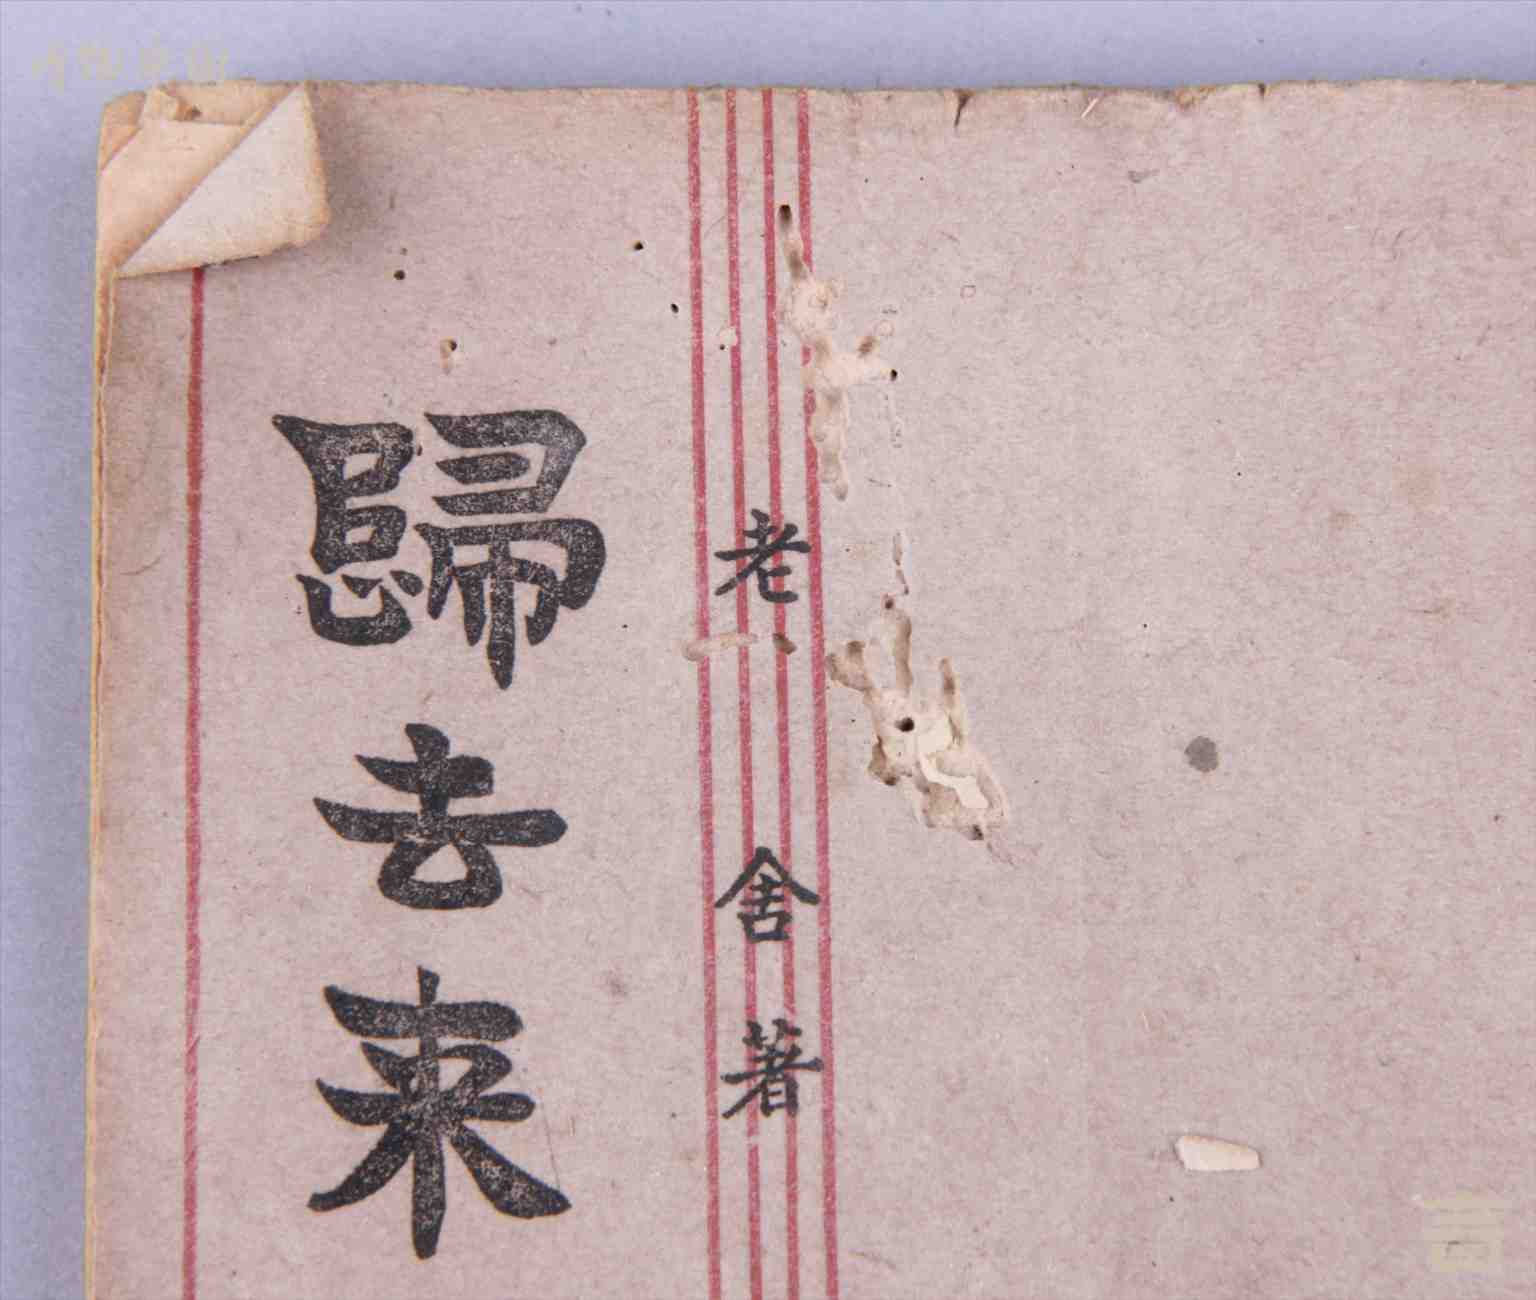 歸去來
老舍著